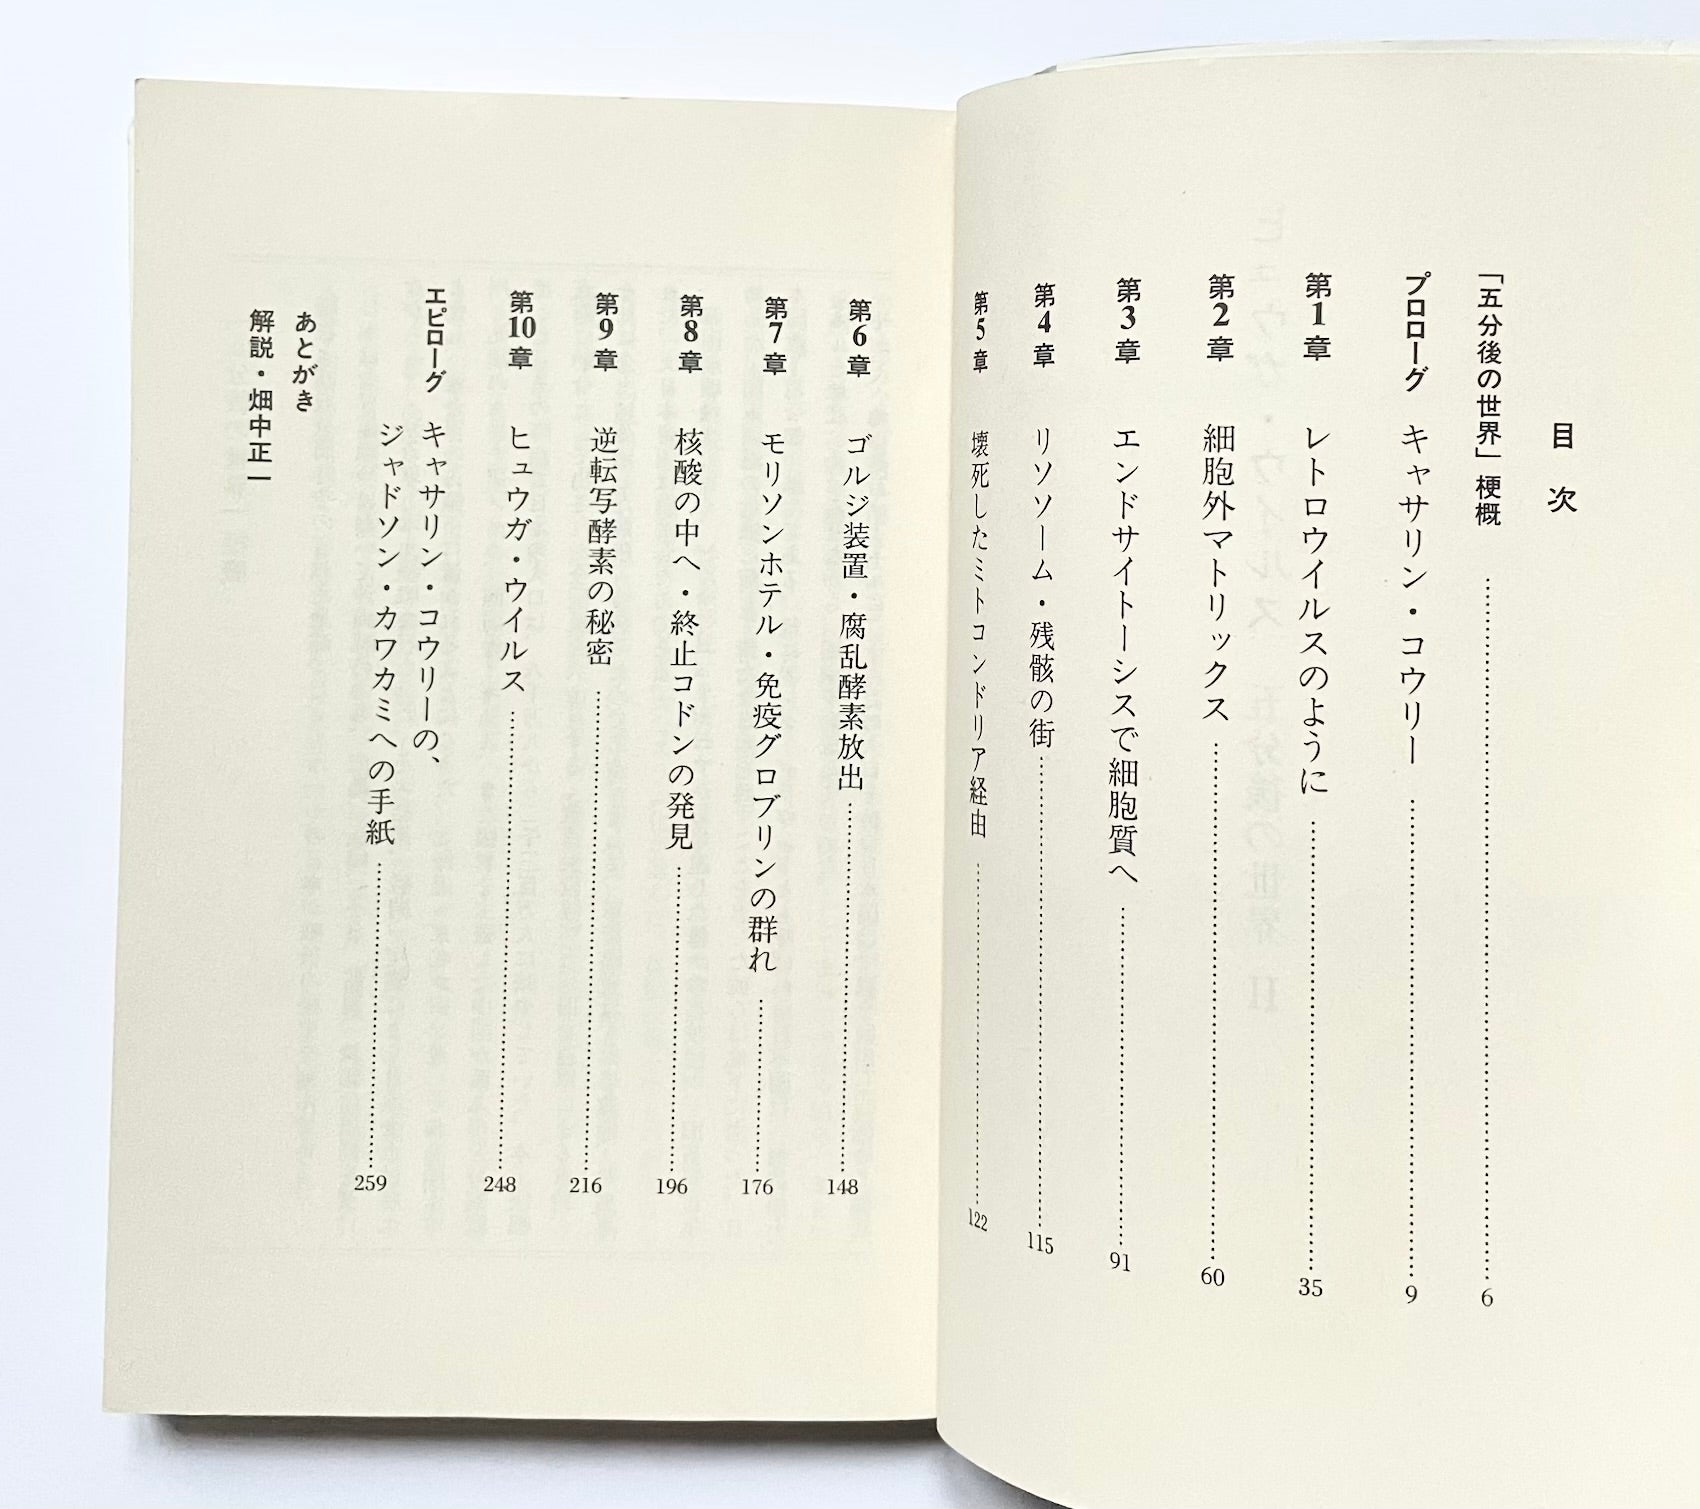 目次
「五分後の世界」梗概……6
プロローグ キャサリン・コウリー……9
第1章 レトロウイルスのように……35
第2章 細胞外マトリックス……60
第3章 エンドサイトーシスで細胞質へ……91
第4章 リソソーム・残骸の街……115
第5章 壊死したミトコンドリア経由……122
第6章 ゴルジ装置・腐乱酵素放出……148
第7章 モリソンホテル・免疫グロブリンの群れ……176
第8章 核酸の中へ・終止コドンの発見……196
第9章 逆転写酵素の秘密……216
第10章 ヒュウガ・ウイルス……248
エピローグ キャサリン・コウリーの、
ジャドソン・カワカミへの手紙……259
あとがき
解説・畑中正一